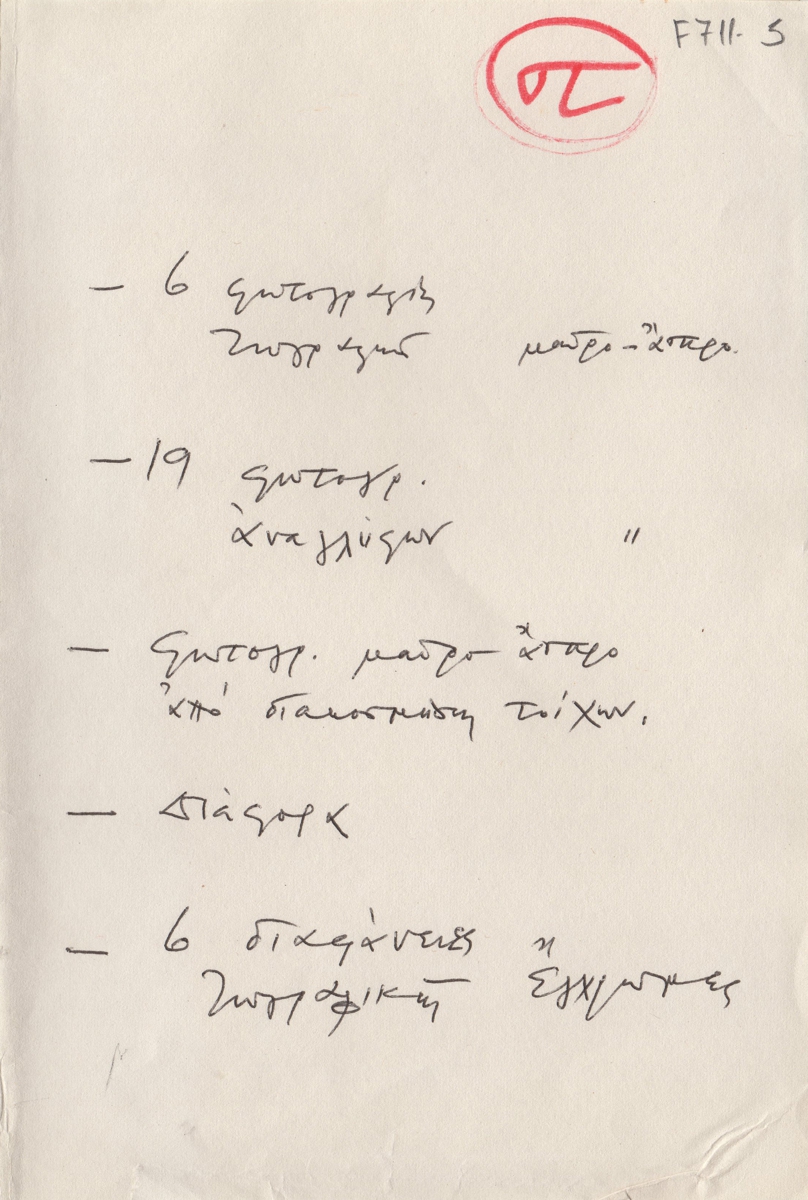 F711-5
στ
— 6 φωτογραφίες
ζωγραφικῆς μαῦρο-ἄσπρο.
— 19 φωτογρ.
ἀναγλύφων "
— Φωτογρ. μαῦρο-ἄσπρο
ἀπό διακοσμήση τοίχων.
— Διάφορα
— 6 διαφάνειες
ζωγραφικῆς ἔγχρωμες